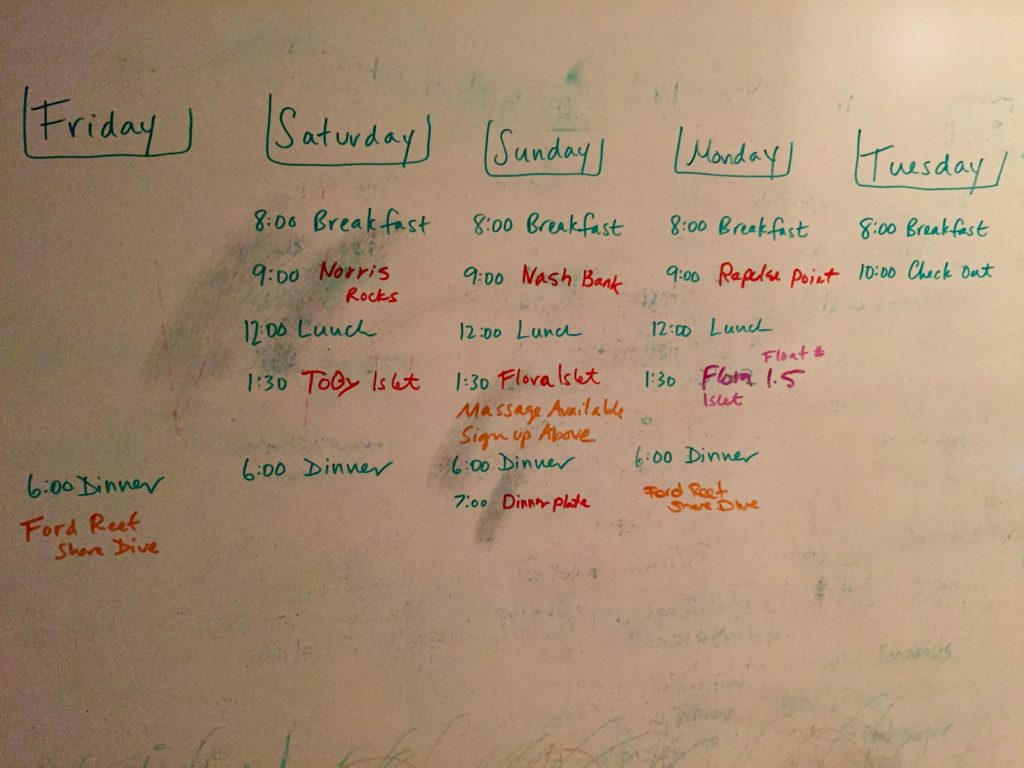 Friday
6:00 Dinner
Ford Reef
Shore Dive
Saturday
8:00 Breakfast
9:00 Norris
Rocks
12:00 Lunch
1:30 Toby Islet
6:00 Dinner
Sunday
8:00 Breakfast
9:00 Nash Bank
12:00 Lunch
1:30 Flora Islet
Massage Available
Sign up Above
6:00 Dinner
7:00 Dinner plate
Monday
8:00 Breakfast
9:00 Repulse Point
12:00 Lunch
Float #
1:30 Flora 1.5
Islet
6:00 Dinner
Ford Reef
Shore Dive
Tuesday
8:00 Breakfast
10:00 Check out